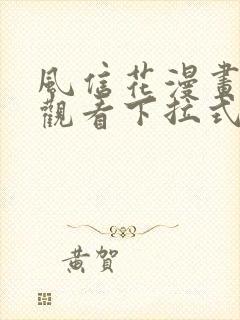 風信花漫畫
觀看下拉式
黃賀